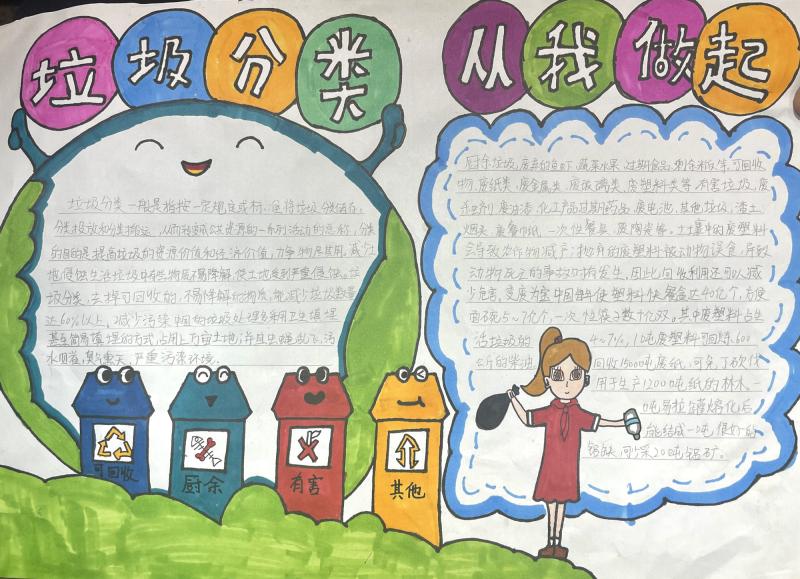 垃圾分类 从我做起
垃圾分类一般是指按一定规定或标准将垃圾分类储存、
分类投放和分类搬运,从而转变成公共资源的一系列活动的总称,分类
的目的是提高垃圾的资源价值和经济价值,力争物尽其用,减少土
地侵蚀生活垃圾中有些物质不易降解,使土地受到严重侵蚀。垃
圾分类,去掉可回收的、不易降解的物质,能减少垃圾数量
达60%以上,2减少污染中国的垃圾处理多采用卫生填埋
甚至简易填埋的方式,占用上万亩土地;并且虫蝇乱飞,污
水四溢,臭气熏天,严重污染环境.
可回收
厨余
有害
其他
厨余垃圾:废弃的 蔬菜水果 过期食品 可回收
物:废纸类 废金属类 废玻璃类 废塑料类等 有害垃圾:废
杀虫剂 废油漆 化工产品过期药品 废电池.其他垃圾:渣土
烟头 一次性餐具 废陶瓷等. 土壤中的废塑料
会导致农作物减产;抛弃的废塑料被动物误食,导致
动物死亡的事故时有发生,因此回收利用还可以减
少危害,变废为宝中国每年使塑料快餐盒达40亿个,方便
面碗5~7亿个,一次性筷子数十亿双,其中废塑料占生
活垃圾的 4~7%,10吨废塑料可回炼600
公斤的柴油. 回收15000吨废纸,可免于砍伐
用于生产1200吨纸的林木.一
吨易拉罐熔化后
能结成一吨很好的
铝块,可少采20吨铝矿。